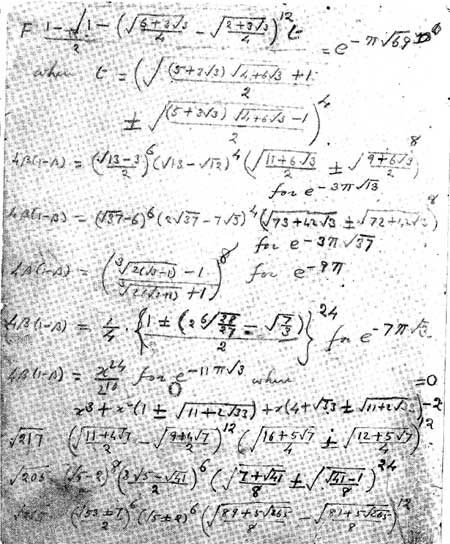 F (1 - √(1 - (√((6+3√3)/4) - √((2+3√3)/4))^12 t))/2 = e^-π√69
when t = (√(((5+3√3) √(4+6√3) + 1)/2)
± √(((5+3√3) √(4+6√3) - 1)/2))^4
4β(1-β) = ((√13-3)/2)^6 (√13-√12)^4 (√((11+6√3)/2) ± √((9+6√3)/2))^8
for e^-3π√13
4β(1-β) = (√37-6)^6 (2√37-7√3)^4 (√(73+42√3) ± √(72+42√3))^8
for e^-3π√37
4β(1-β) = ((∛(2(√3-1)) - 1)/(∛(2(√3+1)) + 1))^8 for e^-9π
4β(1-β) = 1/4 · {(1 ± (2 ⁶√(38/27) - √(7/3)))/2}^24 for e^-7π√3
4β(1-β) = x^24/2^10 for e^-11π√3 where
x^3 + x^2(1 ± √(11+2√33)) + x(4+√33 ± √(11+2√33)) - 2 = 0
√217 (√((11+4√7)/2) - √((9+4√7)/2))^12 (√((16+5√7)/4) ± √((12+5√7)/4))^12
√205 (√5-2)^8 ((3√5-√41)/2)^6 (√((7+√41)/8) ± √((√41-1)/8))^24
(√5±2)^6 (√((89+5√265)/8) - √((81+5√265)/8))^12